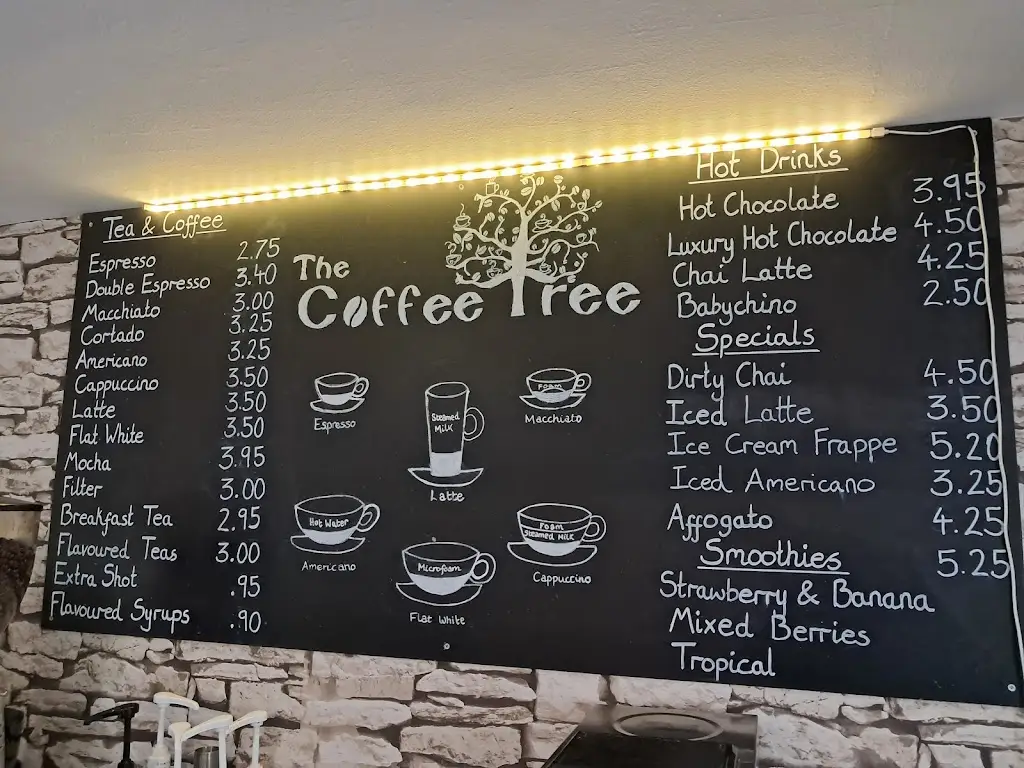 Tea & Coffee
Espresso 2.75
Double Espresso 3.40
Macchiato 3.00
Cortado 3.25
Americano 3.25
Cappuccino 3.50
Latte 3.50
Flat White 3.50
Mocha 3.95
Filter 3.00
Breakfast Tea 2.95
Flavoured Teas 3.00
Extra Shot .95
Flavoured Syrups .90
The
Coffee Tree
Espresso
Steamed
Milk
Latte
Foam
Macchiato
Hot Water
Americano
Microfoam
Flat White
Foam
Steamed Milk
Cappuccino
Hot Drinks
Hot Chocolate 3.95
Luxury Hot Chocolate 4.50
Chai Latte 4.25
Babychino 2.50
Specials
Dirty Chai 4.50
Iced Latte 3.50
Ice Cream Frappe 5.20
Iced Americano 3.25
Affogato 4.25
Smoothies 5.25
Strawberry & Banana
Mixed Berries
Tropical